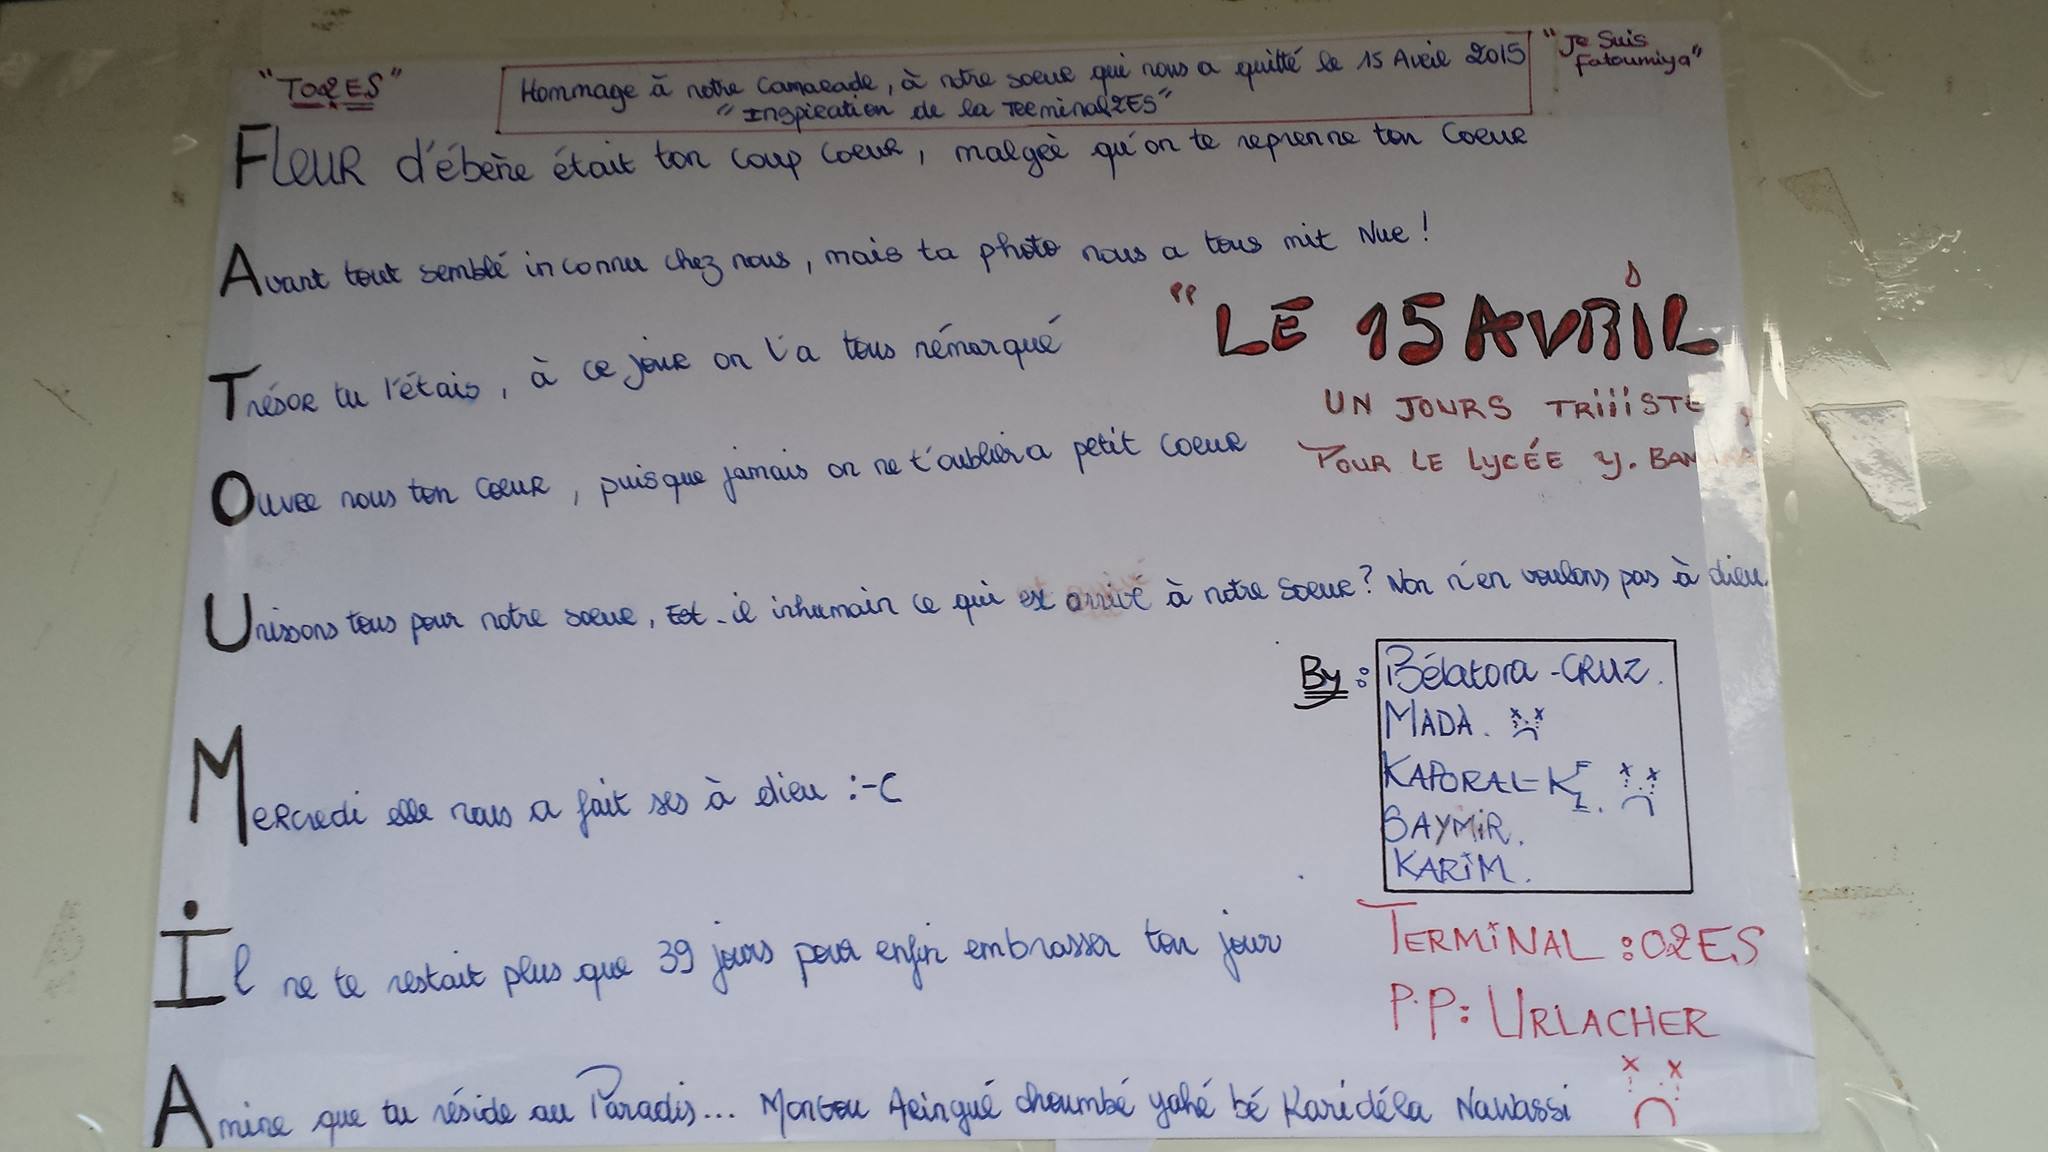 "TO2ES"
Hommage à notre Camarade, à notre soeur qui nous a quitté le 15 Avril 2015
"Inspiration de la Terminal2ES"
"Je Suis
Fatoumiya"
Fleur d'ébène était ton coup coeur, malgré qu'on te reprenne ton Coeur
Avant tout semblé inconnu chez nous, mais ta photo nous a tous mit Nue !
"LE 15 AVRIL
Trésor tu l'étais, à ce jour on l'a tous rémarqué
UN JOURS TRiiiSTE
POUR LE LYCÉE Y. BAMANA
Ouvre nous ton coeur, puisque jamais on ne t'oubliera petit coeur
Unissons tous pour notre soeur, Est-il inhumain ce qui est arrivé à notre Soeur? Non n'en voulons pas à dieu.
By : Bélatora - CRUZ.
MADA.
KAPORAL-K
SAYMiR.
KARiM.
Mercredi elle nous a fait ses à dieu :-C
Il ne te restait plus que 39 jours pour enfin embrasser ton jour
TERMiNAL : O2ES
P.P: URLACHER
Amine que tu réside au Paradis... Mongou Aringué choumbé yahé bé Karidéla Nawassi